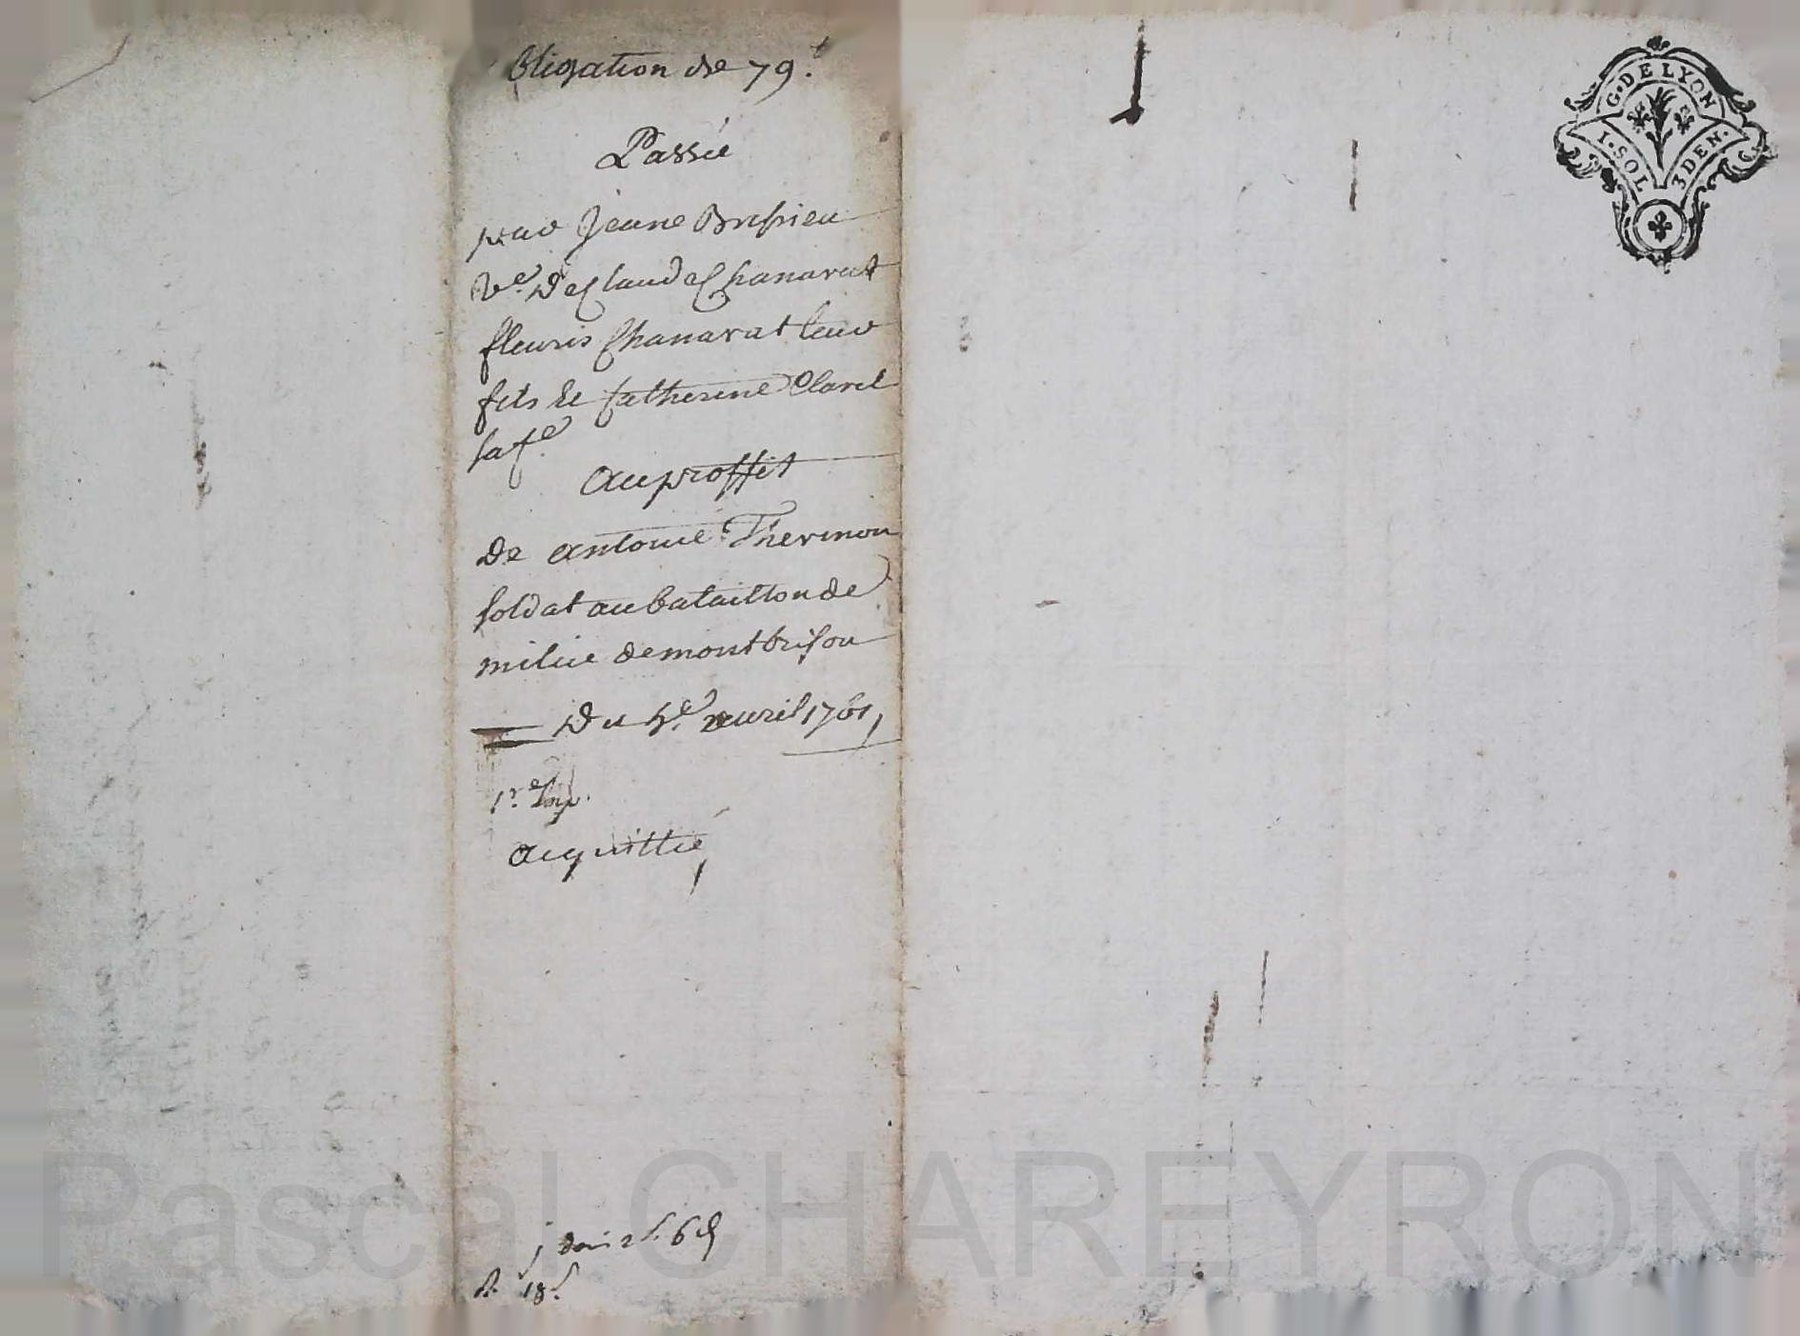 obligation de 79.ᵗ
Passée
par Jeanne Bressieu
Vᵉ. De Claude Chanavat
fleuris Chanavat leur
fils Et Catherine Clavel
sa fᵉ.
au proffit
De antoine Thermou
soldat au bataillon de
milice de montbrison
Du 5ᵉ. avril 1761,
1ʳᵉ Exp.
acquittée,
18ˢ.
G. DE LYON
1. SOL 3 DEN.
Pascal CHAREYRON